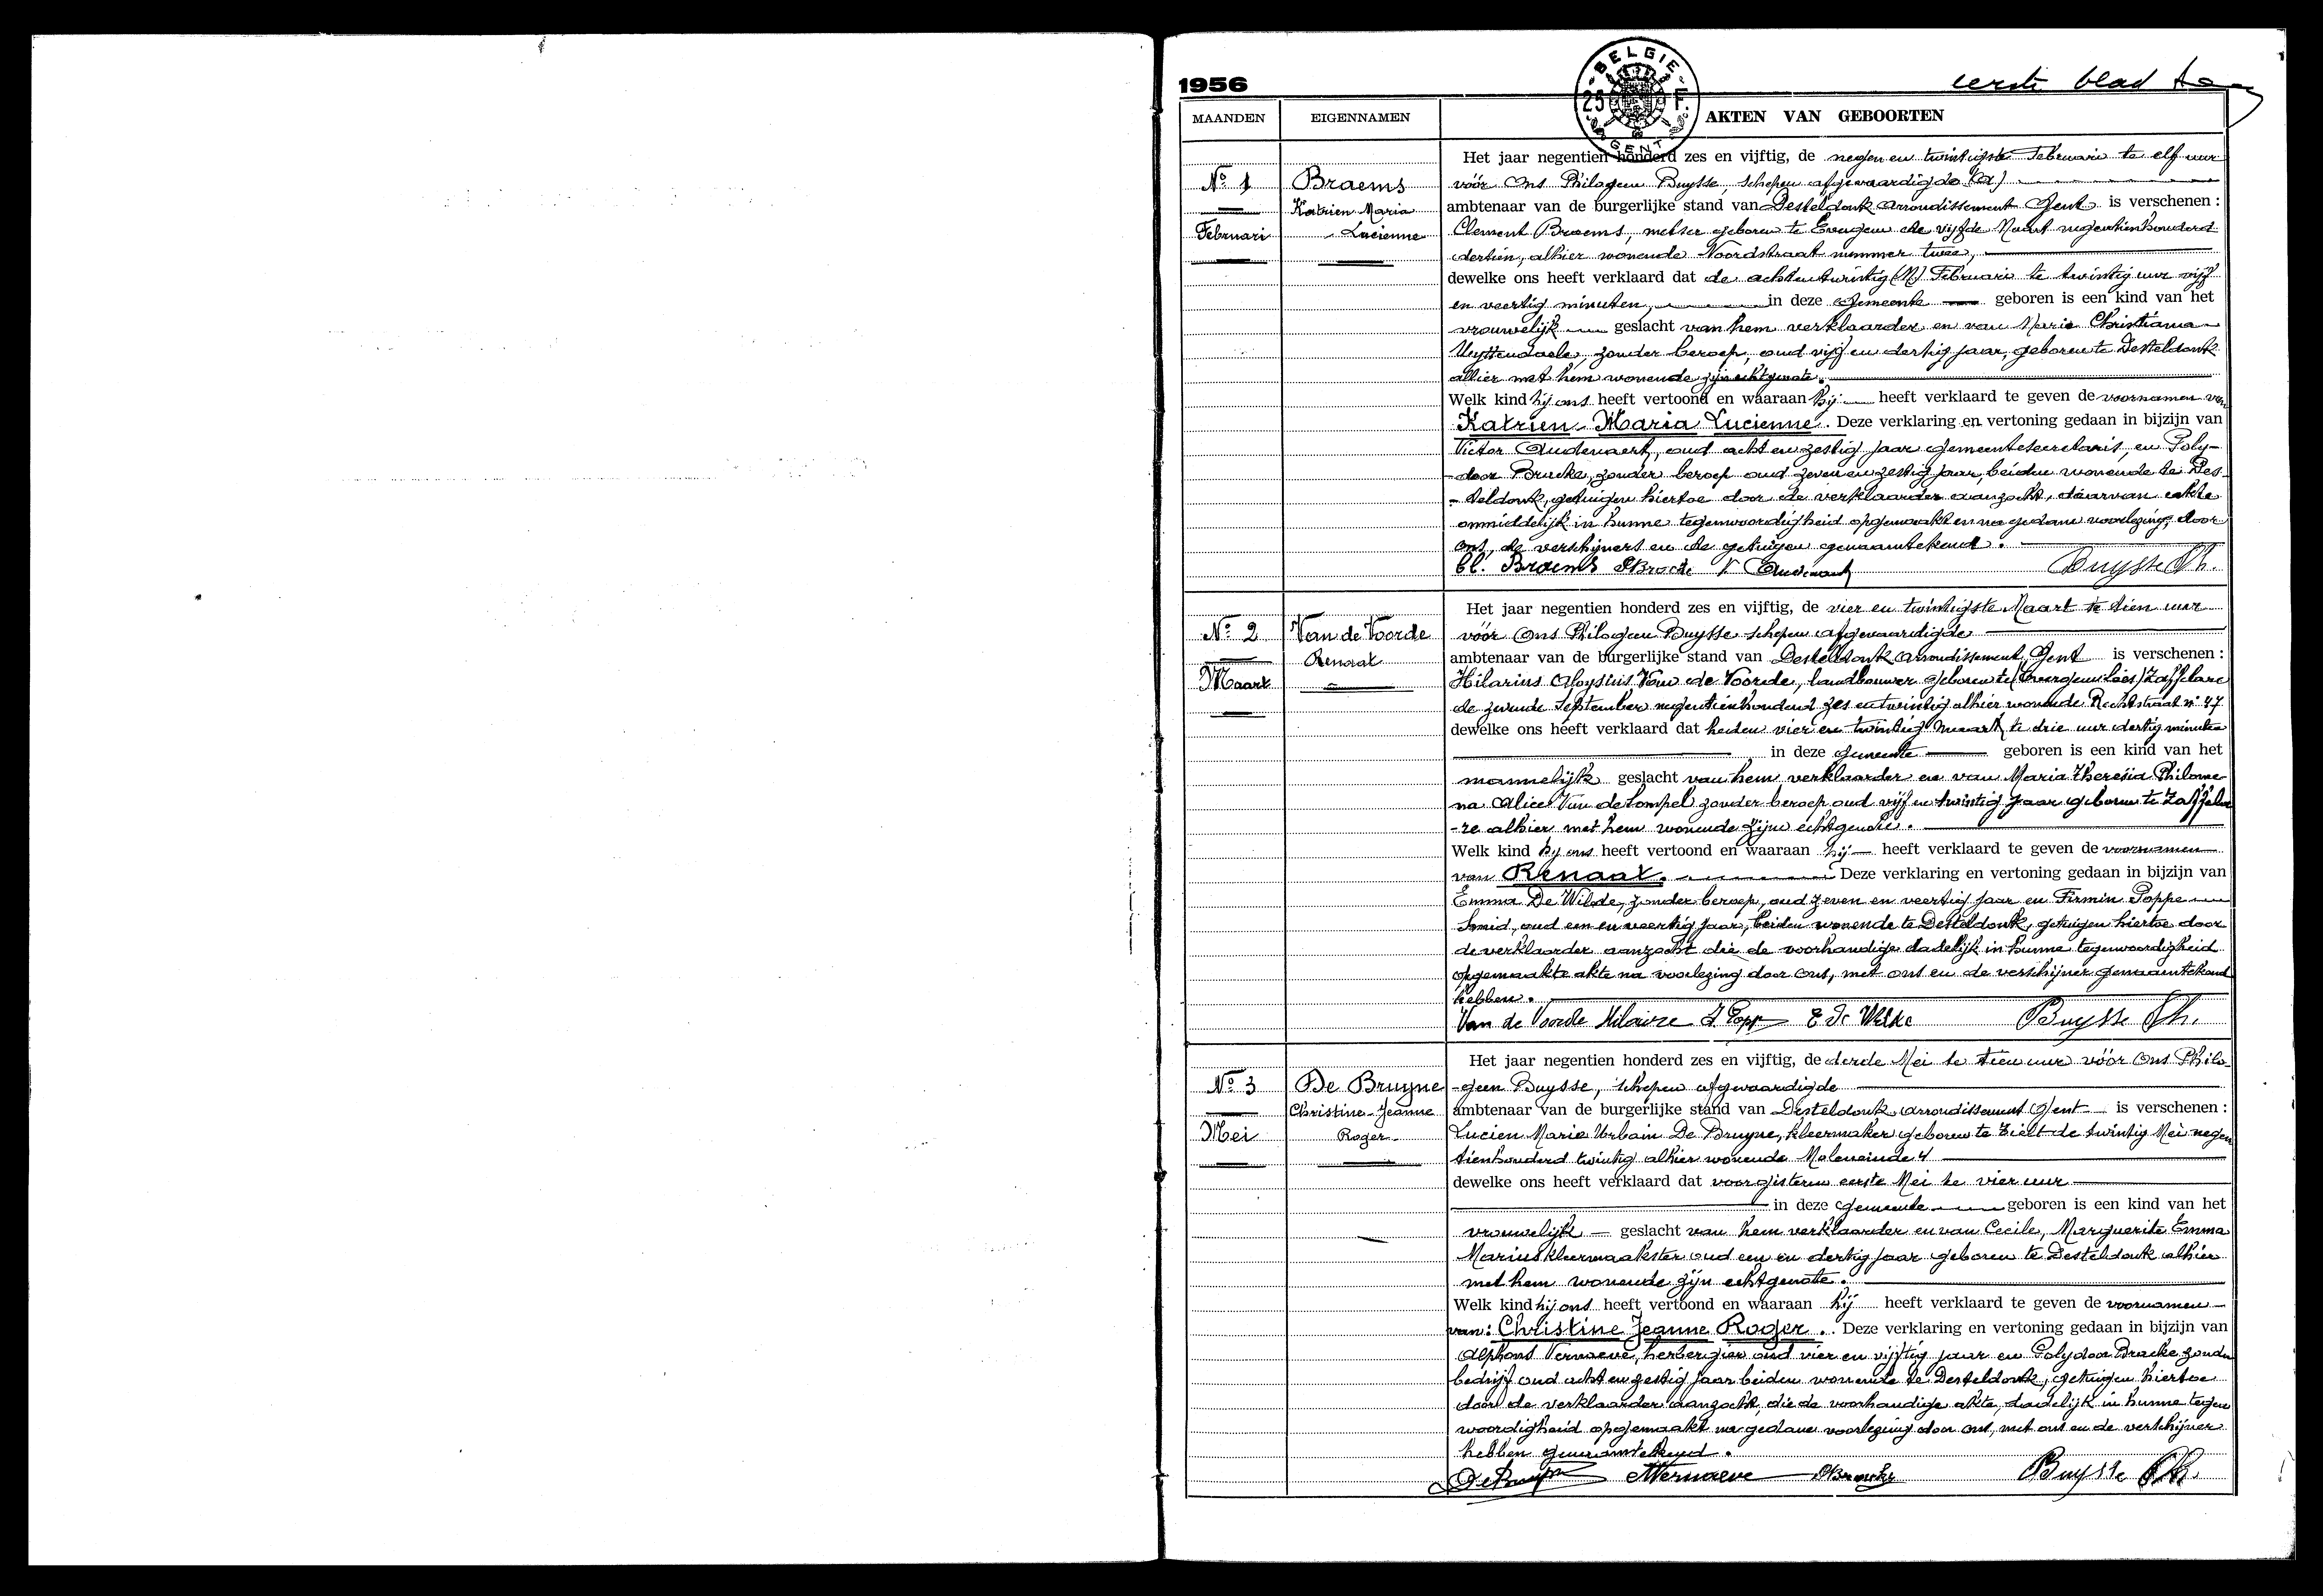 1956
BELGIE
25 F.
GENT
eerste blad
MAANDEN EIGENNAMEN AKTEN VAN GEBOORTEN
Nº 1
Februari
Braems
Katrien Maria
Lucienne
Het jaar negentien honderd zes en vijftig, de negen en twintigste Februari te elf uur
vóór Ons Philogeen Buysse, schepen afgevaardigde (a)
ambtenaar van de burgerlijke stand van Desteldonk arrondissement Gent is verschenen :
Clement Braems, metser geboren te Evergem de vijfde Maart negentienhonderd
dertien, alhier wonende Noordstraat nummer twee,
dewelke ons heeft verklaard dat de achtentwintig Februari te twintig uur vijf
en veertig minuten, in deze gemeente geboren is een kind van het
vrouwelijk geslacht van hem verklaarder en van Maria Christiana
Uyttendaele, zonder beroep, oud vijf en dertig jaar, geboren te Desteldonk
alhier met hem wonende zijn echtgenote.
Welk kind hij ons heeft vertoond en waaraan hij heeft verklaard te geven de voornamen van
Katrien Maria Lucienne. Deze verklaring en vertoning gedaan in bijzijn van
Victor Audenaert, oud acht en zestig jaar gemeentesecretaris, en Poly-
-door Bracke, zonder beroep oud zeven en zestig jaar, beiden wonende te Des-
-teldonk, getuigen hiertoe door de verklaarder aanzocht, daarvan akte
onmiddelijk in hunne tegenwoordigheid opgemaakt en na gedane voorlezing, door
ons, de verschijners en de getuigen genaamtekend.
Cl. Braems PBracke V Audenaert Buysse Ph.
Nº 2
Maart
Van de Voorde
Renaat
Het jaar negentien honderd zes en vijftig, de vier en twintigste Maart te tien uur
vóór Ons Philogeen Buysse schepen afgevaardigde
ambtenaar van de burgerlijke stand van Desteldonk arrondissement Gent is verschenen :
Hilarius Aloysius Van de Voorde, landbouwer geboren te Zaffelare
de zevende September negentienhonderd zes en twintig alhier wonende Rechtstraat nº 47
dewelke ons heeft verklaard dat heden vier en twintig maart te drie uur dertig minuten
in deze gemeente geboren is een kind van het
mannelijk geslacht van hem verklaarder en van Maria Theresia Philome-
na Alice Van de Sompel zonder beroep oud vijf en twintig jaar geboren te Zaffela-
-re alhier met hem wonende zijne echtgenote.
Welk kind hij ons heeft vertoond en waaraan hij heeft verklaard te geven de voornamen
van Renaat. Deze verklaring en vertoning gedaan in bijzijn van
Emma De Wilde, zonder beroep, oud zeven en veertig jaar en Firmin Poppe
smid, oud een en veertig jaar, beiden wonende te Desteldonk, getuigen hiertoe door
de verklaarder aanzocht die de voorhandige dadelijk in hunne tegenwoordigheid
opgemaakte akte na voorlezing door ons, met ons en de verschijner genaamtekend
hebben.
Van de Voorde Hilaire F Poppe E De Wilde Buysse Ph.
Nº 3
Mei
De Bruyne
Christine Jeanne
Roger
Het jaar negentien honderd zes en vijftig, de derde Mei te tien uur vóór Ons Philo-
-geen Buysse, schepen afgevaardigde
ambtenaar van de burgerlijke stand van Desteldonk arrondissement Gent is verschenen :
Lucien Marie Urbain De Bruyne, kleermaker geboren te Tielt de twintig Mei negen
tienhonderd twintig alhier wonende Moleneinde 4
dewelke ons heeft verklaard dat voorgisteren eerste Mei te vier uur
in deze gemeente geboren is een kind van het
vrouwelijk geslacht van hem verklaarder en van Cecile, Marguerite Emma
Marius kleermaakster oud een en dertig jaar geboren te Desteldonk alhier
met hem wonende zijn echtgenote.
Welk kind hij ons heeft vertoond en waaraan hij heeft verklaard te geven de voornamen
van: Christine Jeanne Roger. Deze verklaring en vertoning gedaan in bijzijn van
Alphons Vernaeve, herbergier oud vier en vijftig jaar en Polydoor Bracke zonder
bedrijf oud acht en zestig jaar beiden wonende te Desteldonk, getuigen hiertoe
door de verklaarder aanzocht, die de voorhandige akte, dadelijk in hunne tegen
woordigheid opgemaakt na gedane voorlezing door ons, met ons en de verschijner
hebben genaamtekend.
DeBruyne AVernaeve PBracke Buysse Ph.